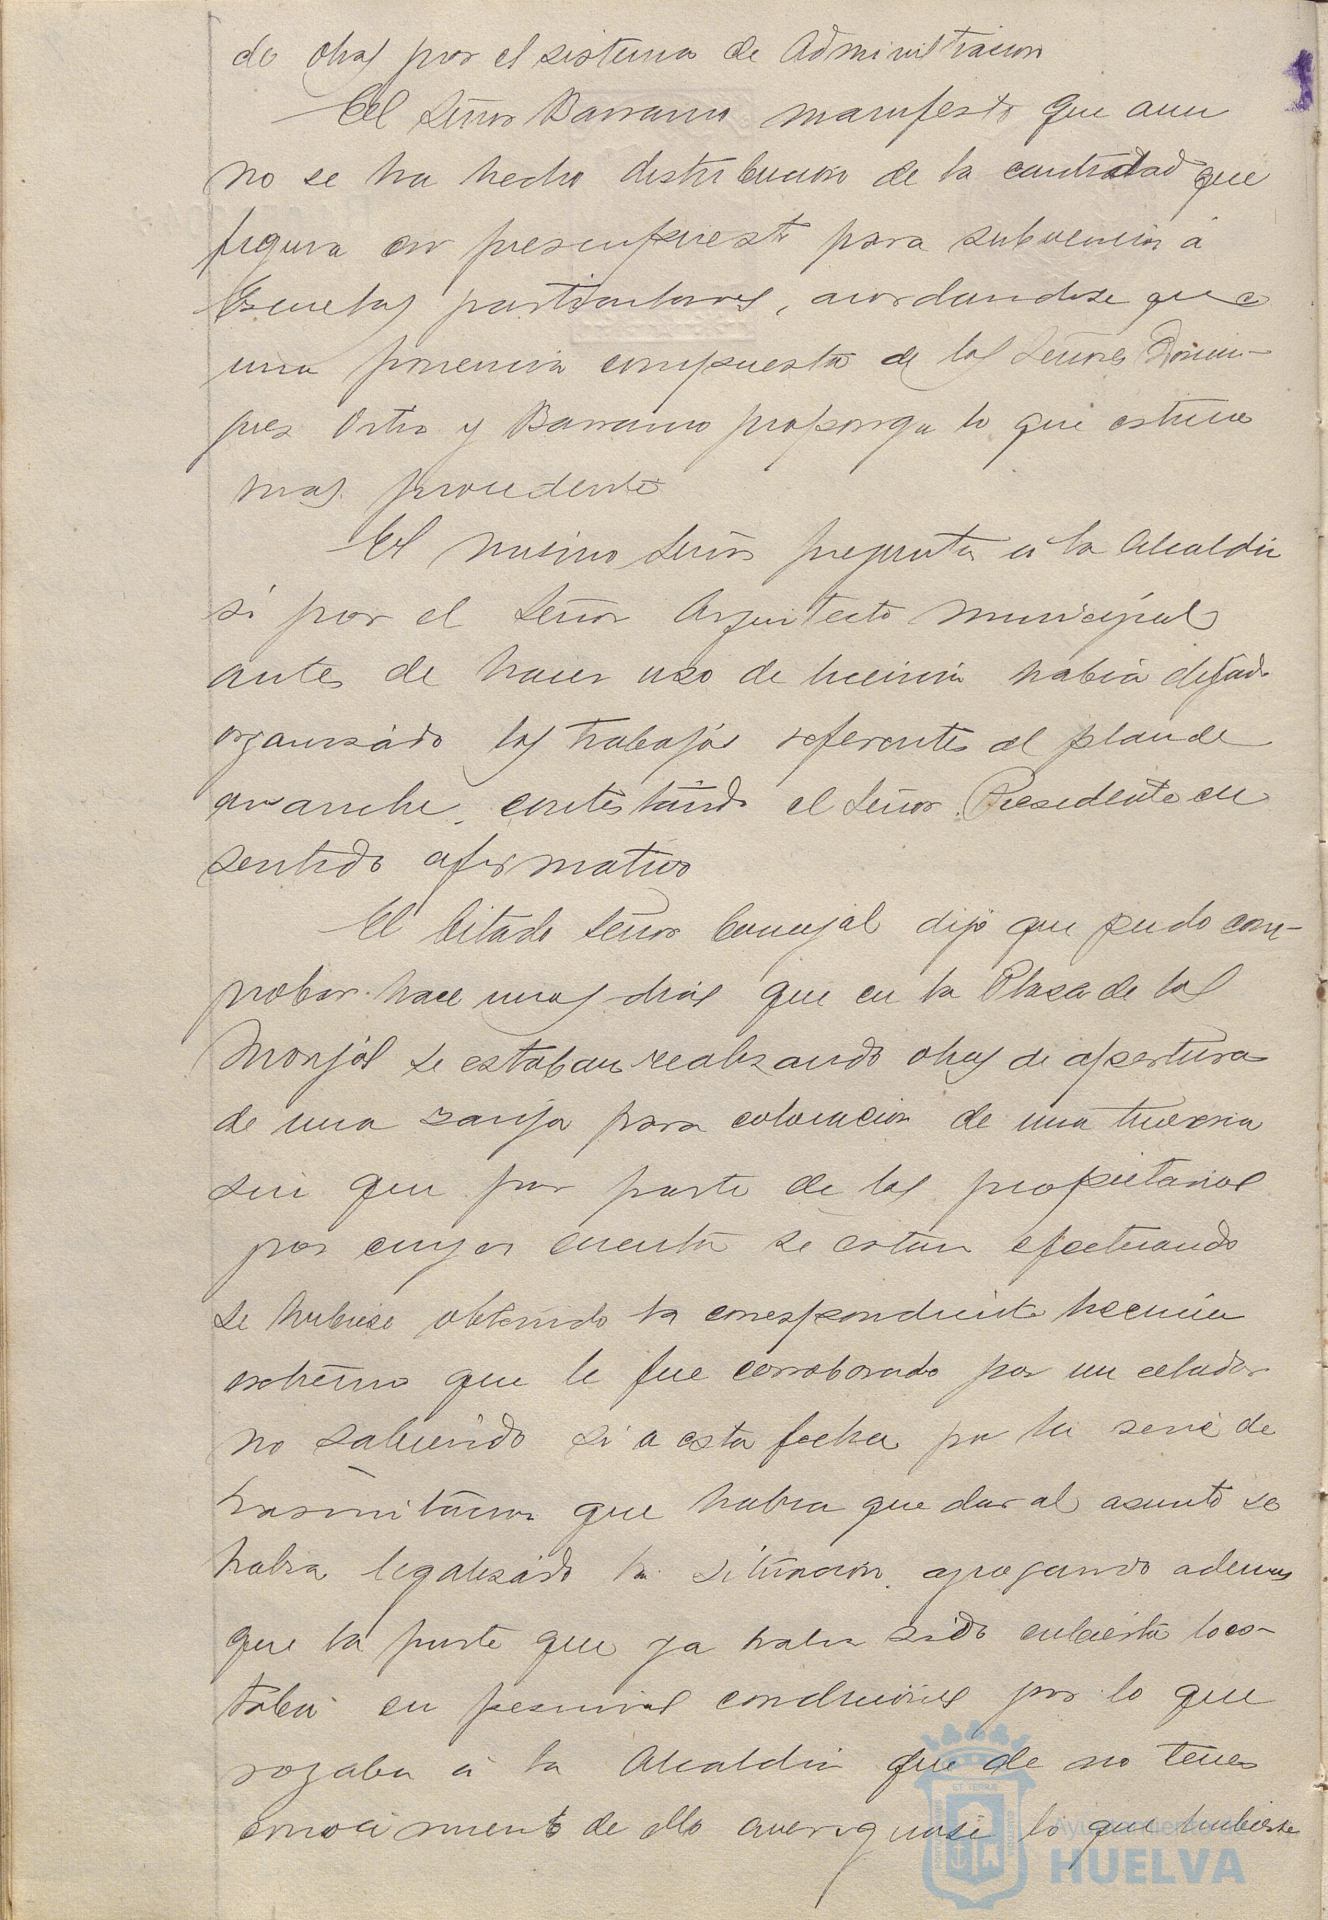 de obras por el sistema de Administracion
El Señor Barranco manifesto que aun
no se ha hecho distribucion de la cantidad que
figura en presupuesto para subvencion á
Escuelas particulares, acordandose que
una ponencia compuesta de los Señores Domin-
guez Ortiz y Barranco proponga lo que estime
mas procedente
El mismo Señor pregunta a la Alcaldia
si por el Señor Arquitecto Municipal
antes de hacer uso de licencia habia dejado
organizado los trabajos referentes al plan de
ensanche, contestando el Señor Presidente en
sentido afirmativo
El Citado Señor Concejal dijo que pudo com-
probar hace unos dias que en la Plaza de las
Monjas se estaban realizando obras de apertura
de una zanja para colocacion de una tuberia
sin que por parte de los propietarios
por cuya cuenta se estan efectuando
se hubiese obtenido la correspondiente licencia
extremo que le fue corroborado por un celador
no sabiendo si a esta fecha por la serie de
tramitacion que habia que dar al asunto se
habia legalizado la situacion, agregando ademas
que la parte que ya habia sido cubierta lo es-
taba en pesimas condiciones por lo que
rogaba a la Alcaldia que de no tener
conocimiento de ello averiguase lo que hubiese
Ayuntamiento de
HUELVA